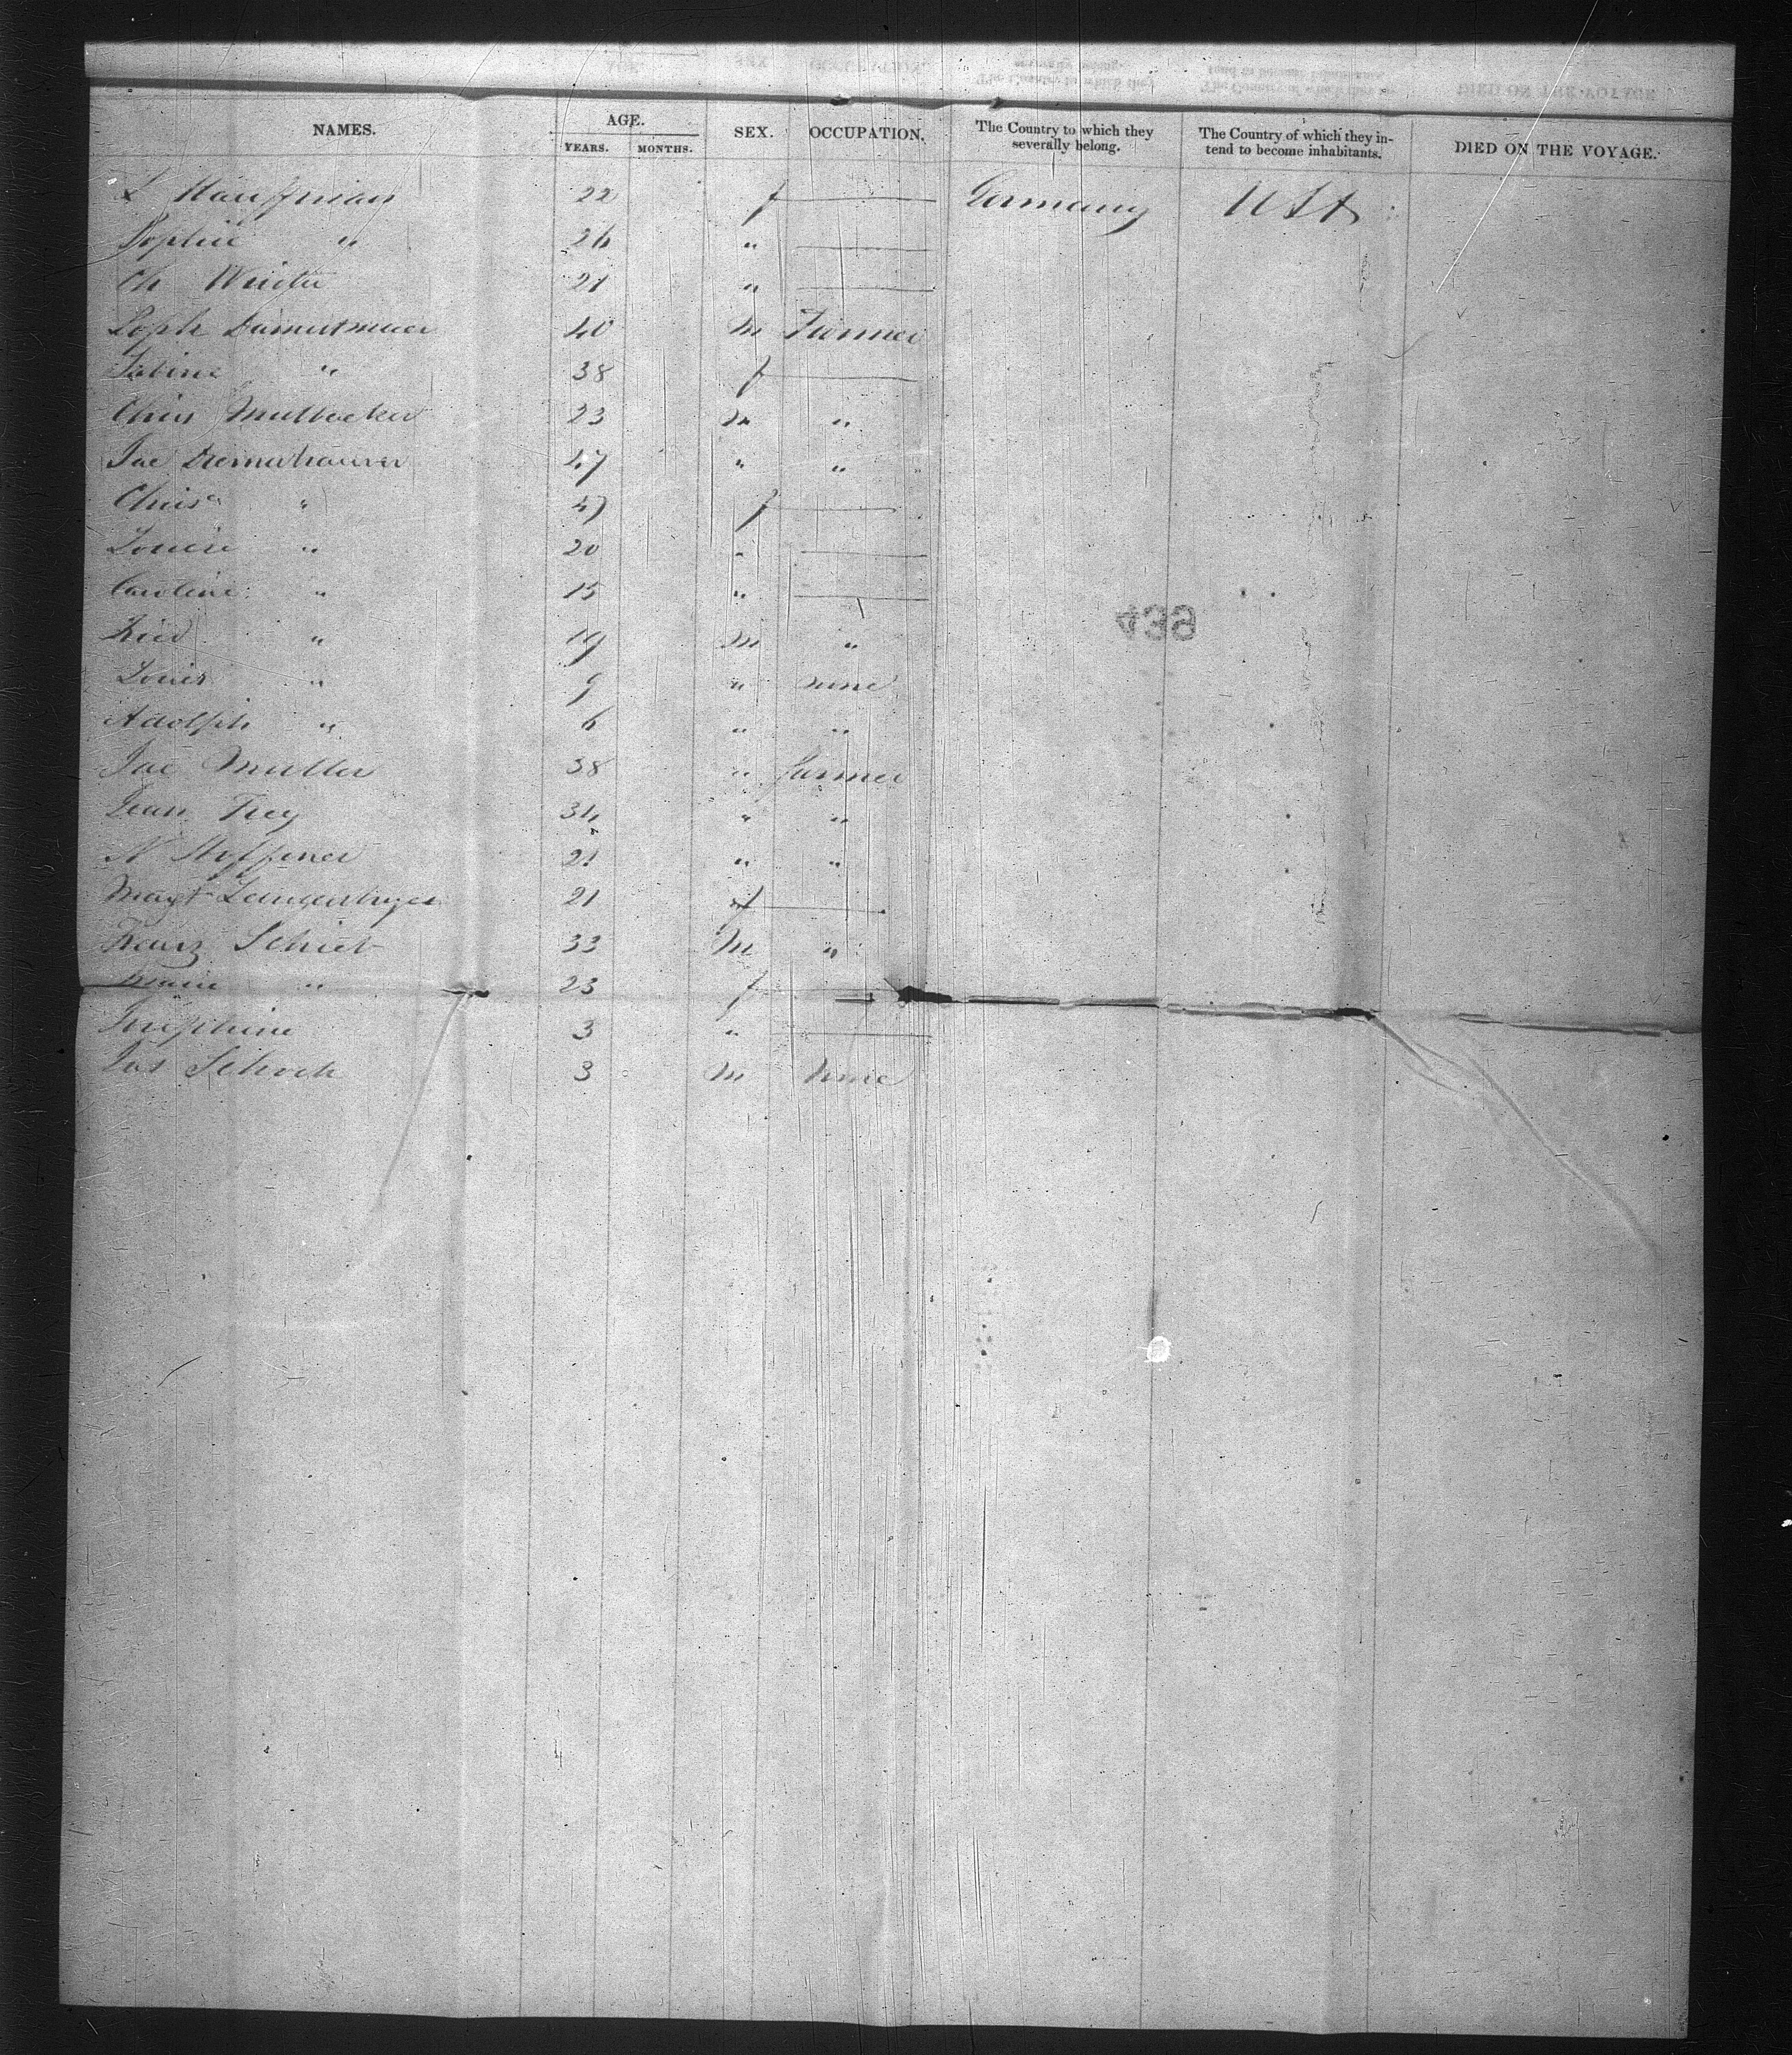 NAMES. AGE. YEARS. MONTHS. SEX. OCCUPATION. The Country to which they severally belong. The Country of which they intend to become inhabitants. DIED ON THE VOYAGE.
L Kauffman 22 f — Germany USA
Sophie " 26 " —
Ch 21 " —
Soph 40 m Farmer
Sabine " 38 f —
Chris 23 m "
Jac 47 " "
Chrisa " 47 f —
Louise " 20 " —
Caroline " 15 " —
" 19 m "
439
Louis " 9 " none
Adolph " 6 " "
Jac Muller 38 " farmer
Jean Frey 34 " "
N 21 " "
Magt 21 f —
Franz Schieb 33 m "
Marie " 23 f —
Josephine 3 " —
Jos Schoch 3 m none